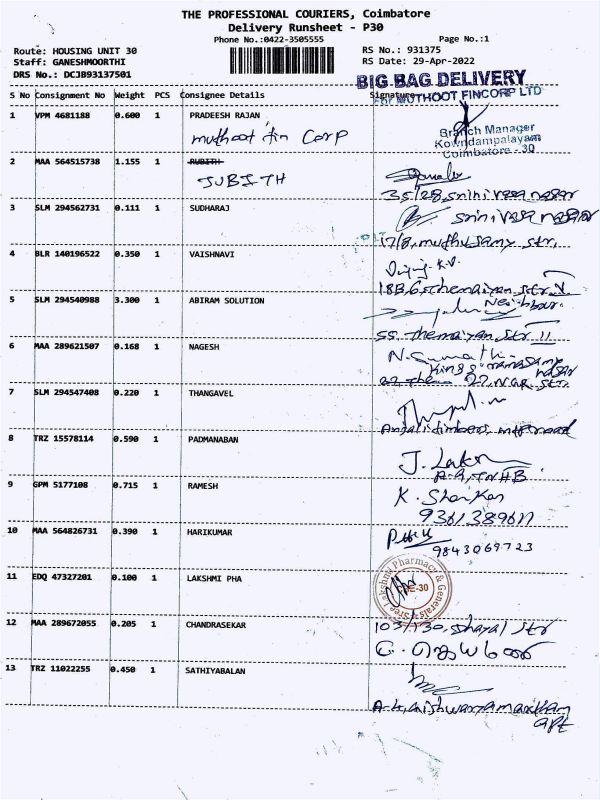 THE PROFESSIONAL COURIERS, Coimbatore
Delivery Runsheet - P30
Phone No.:0422-3505555
Page No.:1
Route: HOUSING UNIT 30
RS No.: 931375
Staff: GANESHMOORTHI
RS Date: 29-Apr-2022
DRS No.: DCJB93137501
BIG BAG DELIVERY
S No Consignment No Weight PCS Consignee Details Signature
For MUTHOOT FINCORP LTD
1 VPM 4681188 0.600 1 PRADEESH RAJAN
muthoot fin Corp
Branch Manager
Kowndampalayam
Coimbatore - 30
2 MAA 564515738 1.155 1 RUBITH
JUBITH
35/28, srinivasa nagar
3 SLM 294562731 0.111 1 SUDHARAJ
srinivasa nagar
17/8, muthusamy str,
4 BLR 140196522 0.350 1 VAISHNAVI
18B, 6, themaiyan str
5 SLM 294540988 3.300 1 ABIRAM SOLUTION
Neighbour.
55 themaiyan str II
6 MAA 289621507 0.168 1 NAGESH
N. Sumathi
nagar
7 SLM 294547408 0.220 1 THANGAVEL
Anjali timbers, mtp road
8 TRZ 15578114 0.590 1 PADMANABAN
A-9, TNHB
9 GPM 5177108 0.715 1 RAMESH
K. Shankar
10 MAA 564826731 0.390 1 HARIKUMAR
9843069723
11 EDQ 47327201 0.100 1 LAKSHMI PHA
Sree Lakshmi Pharmacy & Generals
12 MAA 289672055 0.205 1 CHANDRASEKAR
13 TRZ 11022255 0.450 1 SATHIYABALAN